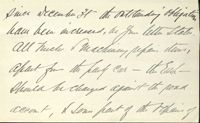 Since December 31st the outstanding obligations
have been increased, as your letter states.
All Trucks & Machinery, repair items,
apart for the part car - the East
should be charged against the road
account, & some part of the repairs of